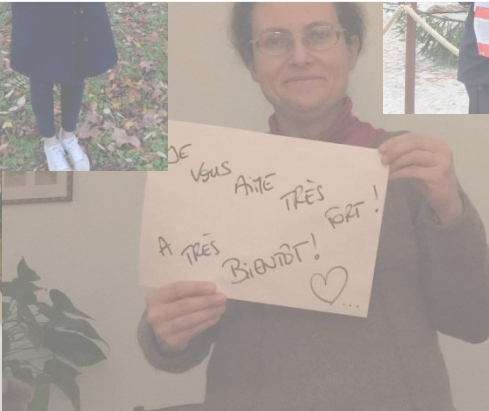 JE VOUS AIME TRÈS FORT !
A TRÈS BIENTÔT !
♡...